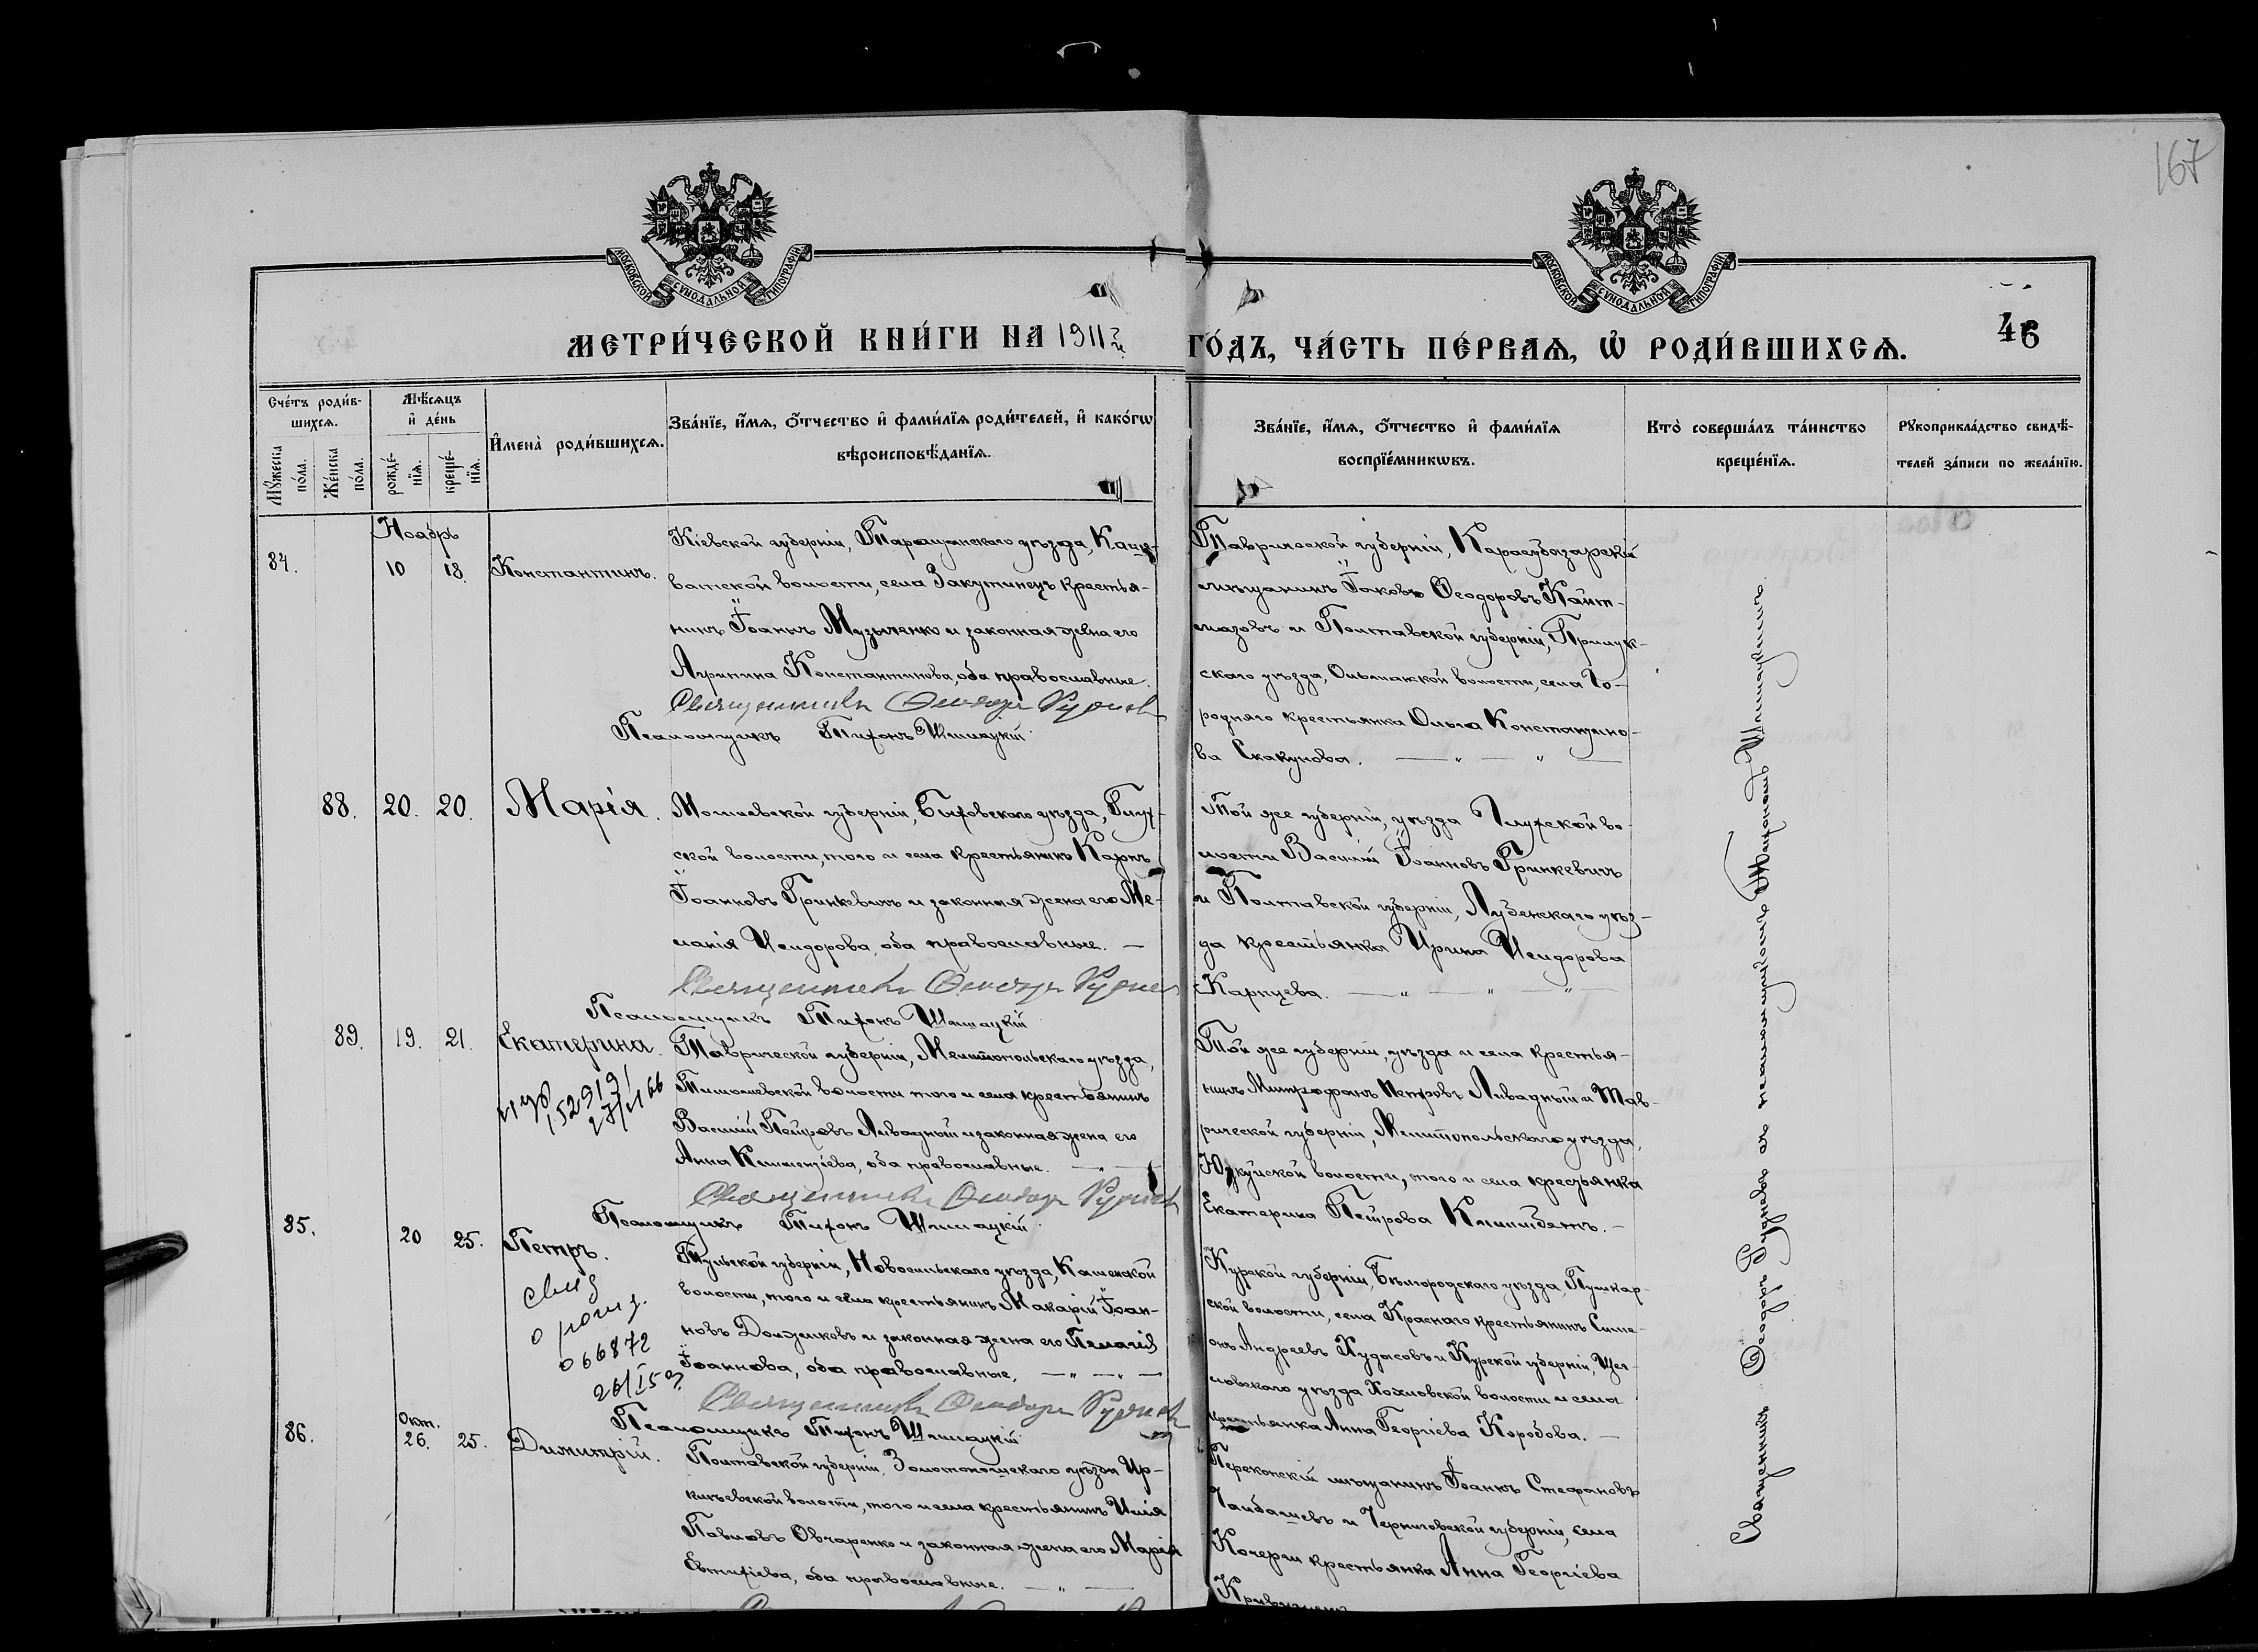 167
МОСКОВСКОЙ СУНОДАЛЬНОЙ ТИПОГРАФІИ
МОСКОВСКОЙ СУНОДАЛЬНОЙ ТИПОГРАФІИ
МЕТРИ́ЧЕСКОЙ КНИ́ГИ НА 1911й
ГО́ДЪ, ЧА́СТЬ ПЕ́РВАѦ, Ѡ҆ РОДИ́ВШИХСѦ.
46
Сче́тъ роди́в-
шихсѧ.
Мꙋ́жеска
по́ла.
Же́нска
по́ла.
Мѣ́сѧцъ
и҆ де́нь
рожде́-
нїѧ.
креще́-
нїѧ.
И҆мена̀ роди́вшихсѧ.
Зва́нїе, и҆́мѧ, ѻ҆́тчество и҆ фами́лїѧ роди́телей, и҆ како́гѡ
вѣроисповѣ́данїѧ.
Зва́нїе, и҆́мѧ, ѻ҆́тчество и҆ фами́лїѧ
воспрїе́мникѡвъ.
Кто̀ соверша́лъ та́инство
креще́нїѧ.
Рꙋкоприкла́дство свидѣ́-
телей за́писи по жела́нїю.
Ноябрь
84.
10
18.
Константинъ.
Кіевской губерніи, Таращанскаго уѣзда,
ватской волости, села Закутинецъ крестья-
нинъ Іоаннъ Музыченко и законная жена его
Агрипина Константинова, оба православные.
Священникъ Ѳеодоръ Рудневъ
Псаломщикъ Тихонъ Шишацкій
Таврической губерніи, Карасубазарскій
мѣщанинъ Іаковъ Ѳеодоровъ Кайт-
мазовъ и Полтавской губерніи, Прилук-
скаго уѣзда, волости, села Го-
родняго крестьянка Ольга Константино-
ва Скакунова. — „ — „ —
88.
20.
20.
Марія.
Могилевской губерніи, Быховскаго уѣзда, Глух-
ской волости, того и села крестьянинъ Карпъ
Іоанновъ Гринкевичъ и законная жена его Ме-
ланія Исидорова, оба православные. —
Священникъ Ѳеодоръ Рудневъ
Псаломщикъ Тихонъ Шишацкій
Той же губерніи, уѣзда Глухской во-
лости Василій Іоанновъ Гринкевичъ
и Полтавской губерніи, Лубенскаго уѣз-
да крестьянка Ирина Исидорова
Карпцева. — „ — „ — „ —
89.
19.
21.
Екатерина.
Таврической губерніи, Мелитопольскаго уѣзда,
Тимошевской волости того и села крестьянинъ
Василій Петровъ Ливадный и законная жена его
Анна Климентіева, оба православные. —
Священникъ Ѳеодоръ Рудневъ
Псаломщикъ Тихонъ Шишацкій
Той же губерніи, уѣзда и села крестья-
нинъ Митрофанъ Петровъ Ливадный и Тав-
рической губерніи, Мелитопольскаго уѣзда,
Юзкуйской волости, того и села крестьянка
Екатерина Петрова
85.
20
25.
Петръ.
066872
Тульской губерніи, Новосильскаго уѣзда, Каменской
волости, того и села крестьянинъ Макарій Іоан-
новъ Должиковъ и законная жена его Пелагія
Іоаннова, оба православные. — „ — „ —
Священникъ Ѳеодоръ Рудневъ
Псаломщикъ Тихонъ Шишацкій
Курской губерніи, Бѣлгородскаго уѣзда, Пушкар-
ской волости, села Краснаго крестьянинъ Симе-
онъ Андреевъ Худасовъ и Курской губерніи,
уѣзда волости и села
крестьянка Анна Георгіева Коробова. —
86.
Окт.
26.
25.
Димитрій.
Полтавской губерніи, Золотоношскаго уѣзда Ир-
клѣевской волости, того и села крестьянинъ Илія
Павловъ Овчаренко и законная жена его Марія
Евтихіева, оба православные. — „ —
Перекопскій мѣщанинъ Іоаннъ Стефановъ
и Черниговской губерніи, села
Кочерги крестьянка Анна Георгіева
Священникъ Ѳеодоръ Рудневъ съ псаломщикомъ Тихономъ Шишацкимъ